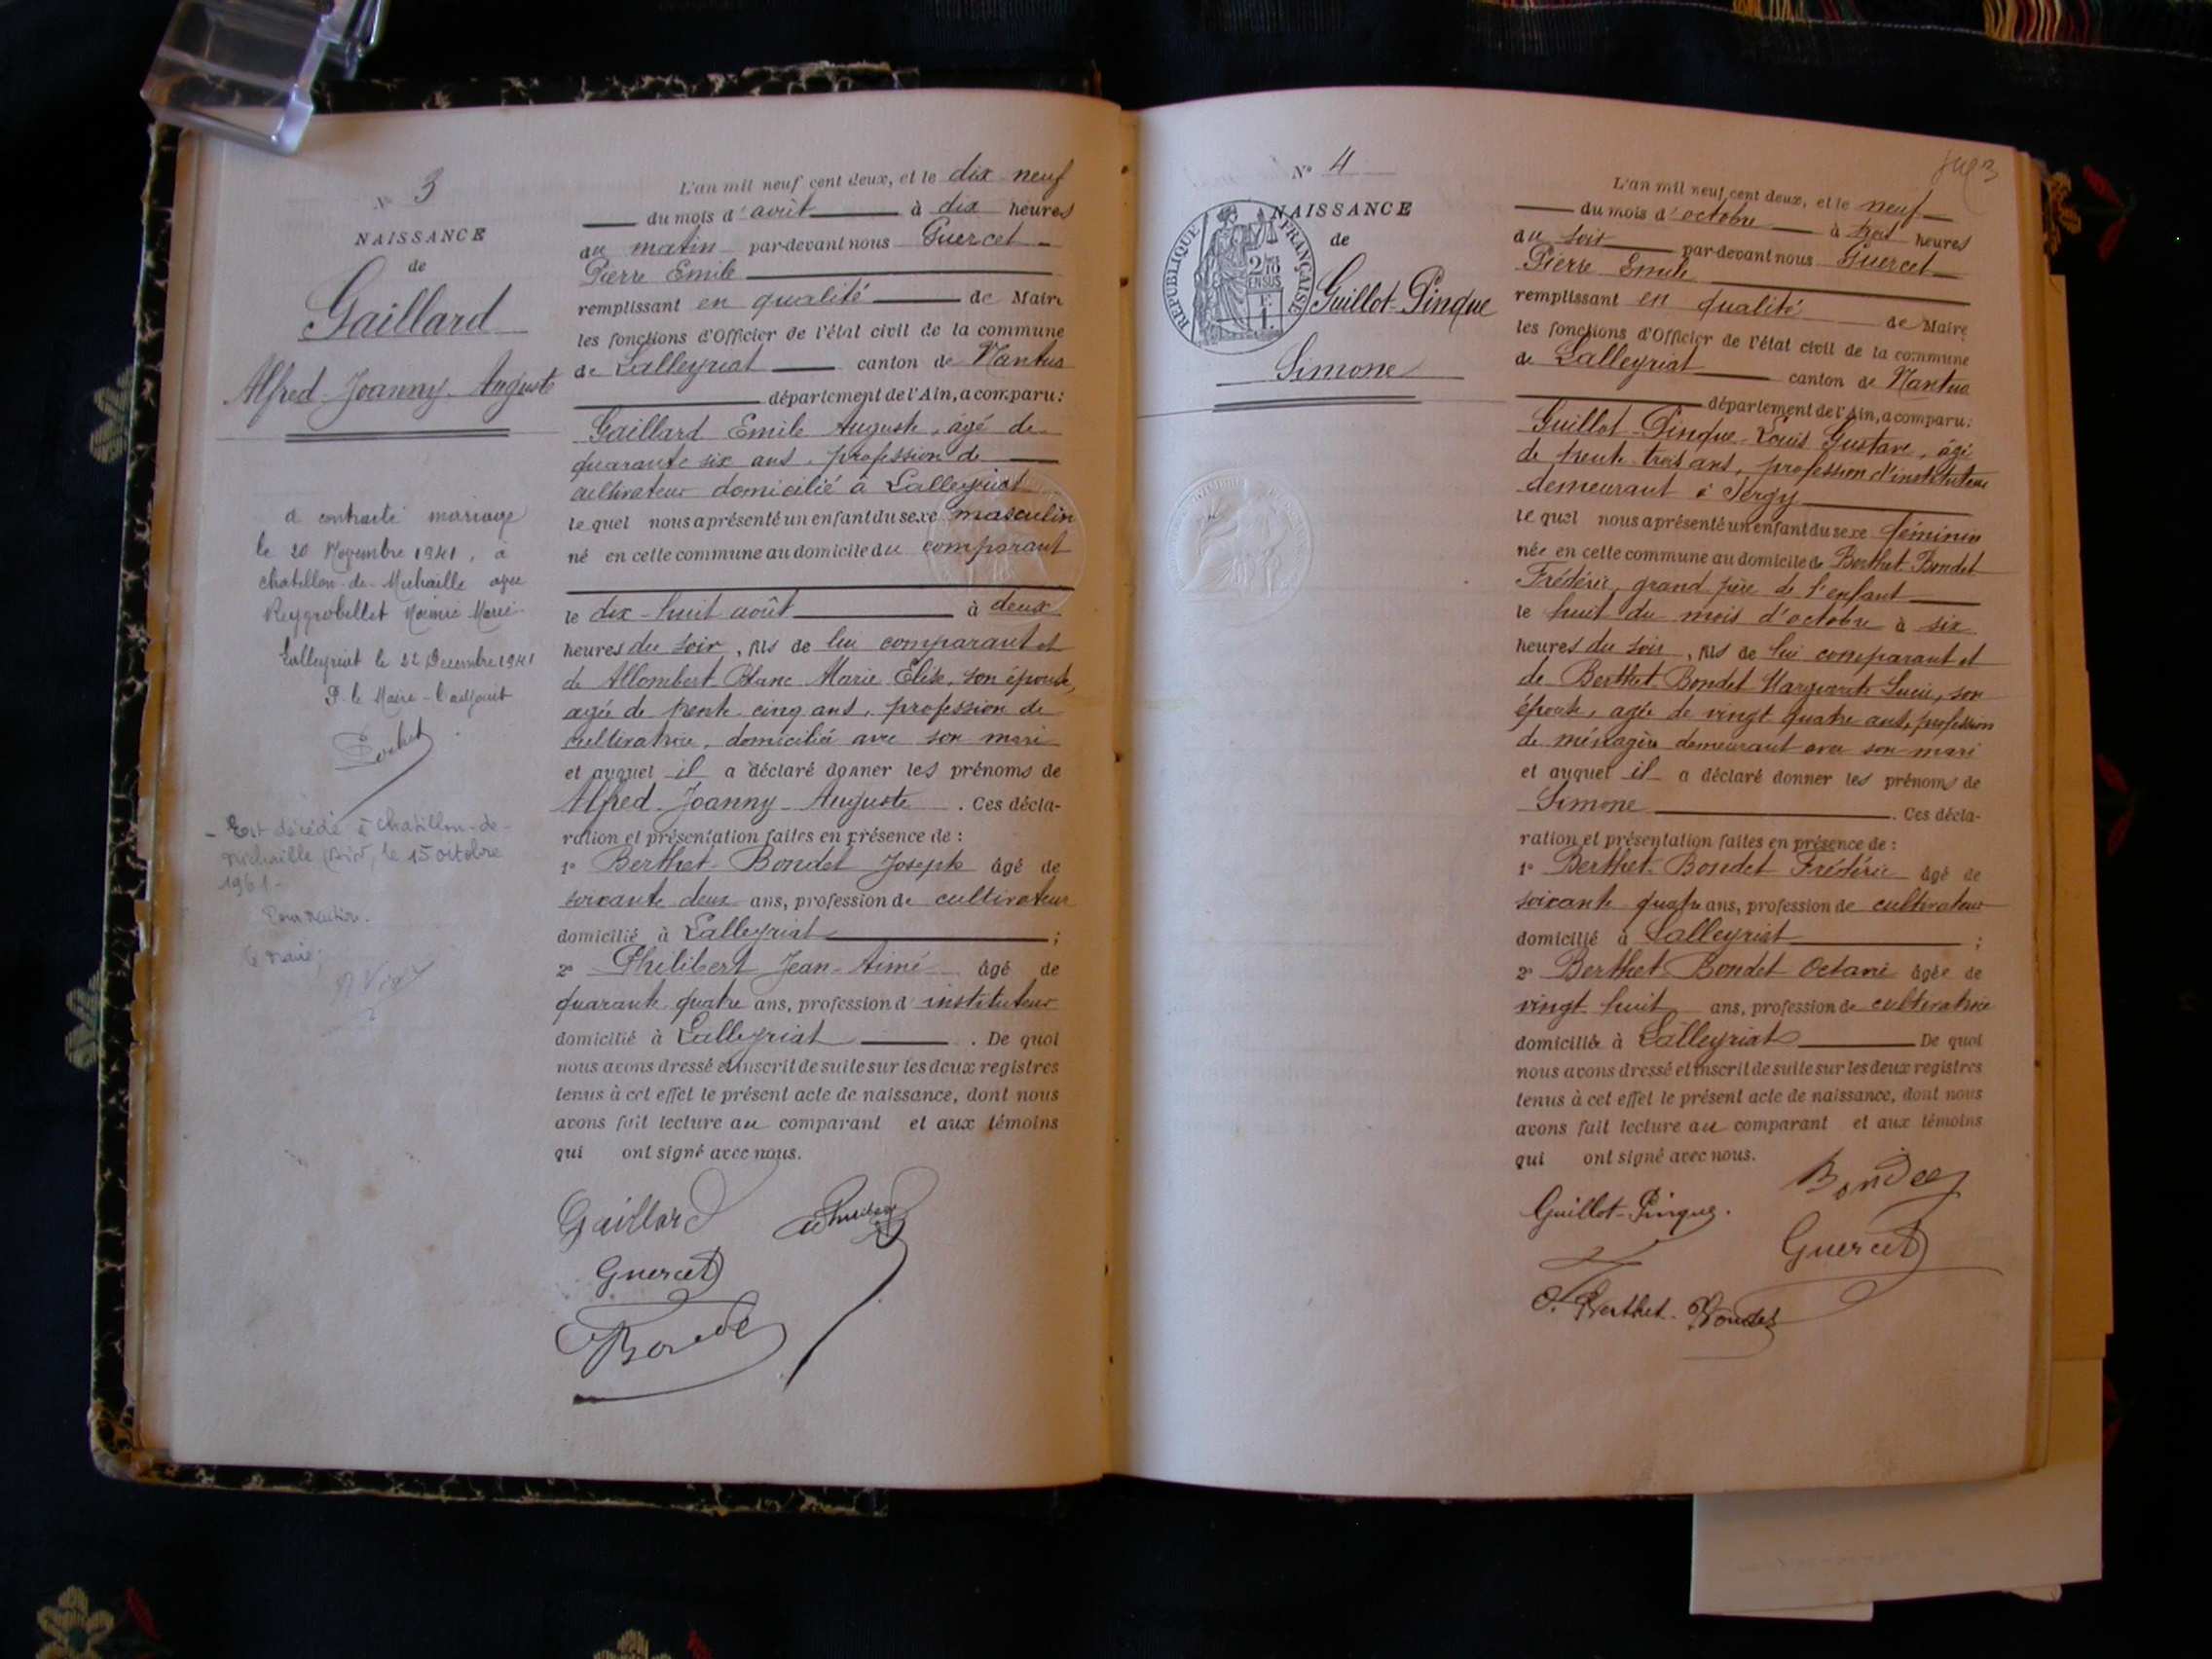 N° 3
NAISSANCE
de
Gaillard
Alfred-Joanny-Auguste
a contracté mariage
le 20 Novembre 1941, à
chatillon-de-Michaille avec
Reygrobellet Marie
Lalleyriat le 22 Décembre 1941
P. le Maire - l'adjoint
- Est décédé à Chatillon-de-
Michaille (Ain), le 15 octobre
1961-
Pour mention.
le maire
L'an mil neuf cent deux, et le dix neuf
du mois d'août à dix heures
du matin par-devant nous Guercet
Pierre Emile
remplissant en qualité de Maire
les fonctions d'Officier de l'état civil de la commune
de Lalleyriat canton de Nantua
département de l'Ain, a comparu:
Gaillard Emile Auguste, âgé de
quarante six ans, profession de
cultivateur domicilié à Lalleyriat
lequel nous a présenté un enfant du sexe masculin
né en cette commune au domicile du comparant
le dix-huit août à deux
heures du soir, fils de lui comparant et
de Allombert-Blanc Marie Elise, son épouse,
agée de trente-cinq ans, profession de
cultivatrice, domiciliée avec son mari
et auquel il a déclaré donner les prénoms de
Alfred-Joanny-Auguste. Ces décla-
ration et présentation faites en présence de :
1° Berthet-Bondet Joseph âgé de
soixante deux ans, profession de cultivateur
domicilié à Lalleyriat ;
2° Philibert Jean-Aimé âgé de
quarante quatre ans, profession d'instituteur
domicilié à Lalleyriat. De quoi
nous avons dressé et inscrit de suite sur les deux registres
tenus à cet effet le présent acte de naissance, dont nous
avons fait lecture au comparant et aux témoins
qui ont signé avec nous.
Gaillard
Guercet
Bondet
N° 4
NAISSANCE
de
RÉPUBLIQUE FRANÇAISE
2/10 EN SUS
F. 1.
Guillot-Pinque
Simone
L'an mil neuf cent deux, et le neuf
du mois d'octobre à trois heures
du soir par-devant nous Guercet
Pierre Emile
remplissant en qualité de Maire
les fonctions d'Officier de l'état civil de la commune
de Lalleyriat canton de Nantua
département de l'Ain, a comparu:
Guillot-Pinque Louis Gustave, âgé
de trente-trois ans, profession d'instituteur
demeurant à Sergy
lequel nous a présenté un enfant du sexe féminin
née en cette commune au domicile de Berthet-Bondet
Frédéric, grand père de l'enfant
le huit du mois d'octobre à six
heures du soir, fils de lui comparant et
de Berthet-Bondet Marguerite Lucie, son
épouse, agée de vingt quatre ans, profession
de ménagère demeurant avec son mari
et auquel il a déclaré donner les prénoms de
Simone. Ces décla-
ration et présentation faites en présence de :
1° Berthet-Bondet Frédéric âgé de
soixante quatre ans, profession de cultivateur
domicilié à Lalleyriat ;
2° Berthet-Bondet Octavie âgée de
vingt huit ans, profession de cultivatrice
domiciliée à Lalleyriat De quoi
nous avons dressé et inscrit de suite sur les deux registres
tenus à cet effet le présent acte de naissance, dont nous
avons fait lecture au comparant et aux témoins
qui ont signé avec nous.
Bondet
Guillot-Pinque.
Guercet
O. Berthet-Bondet